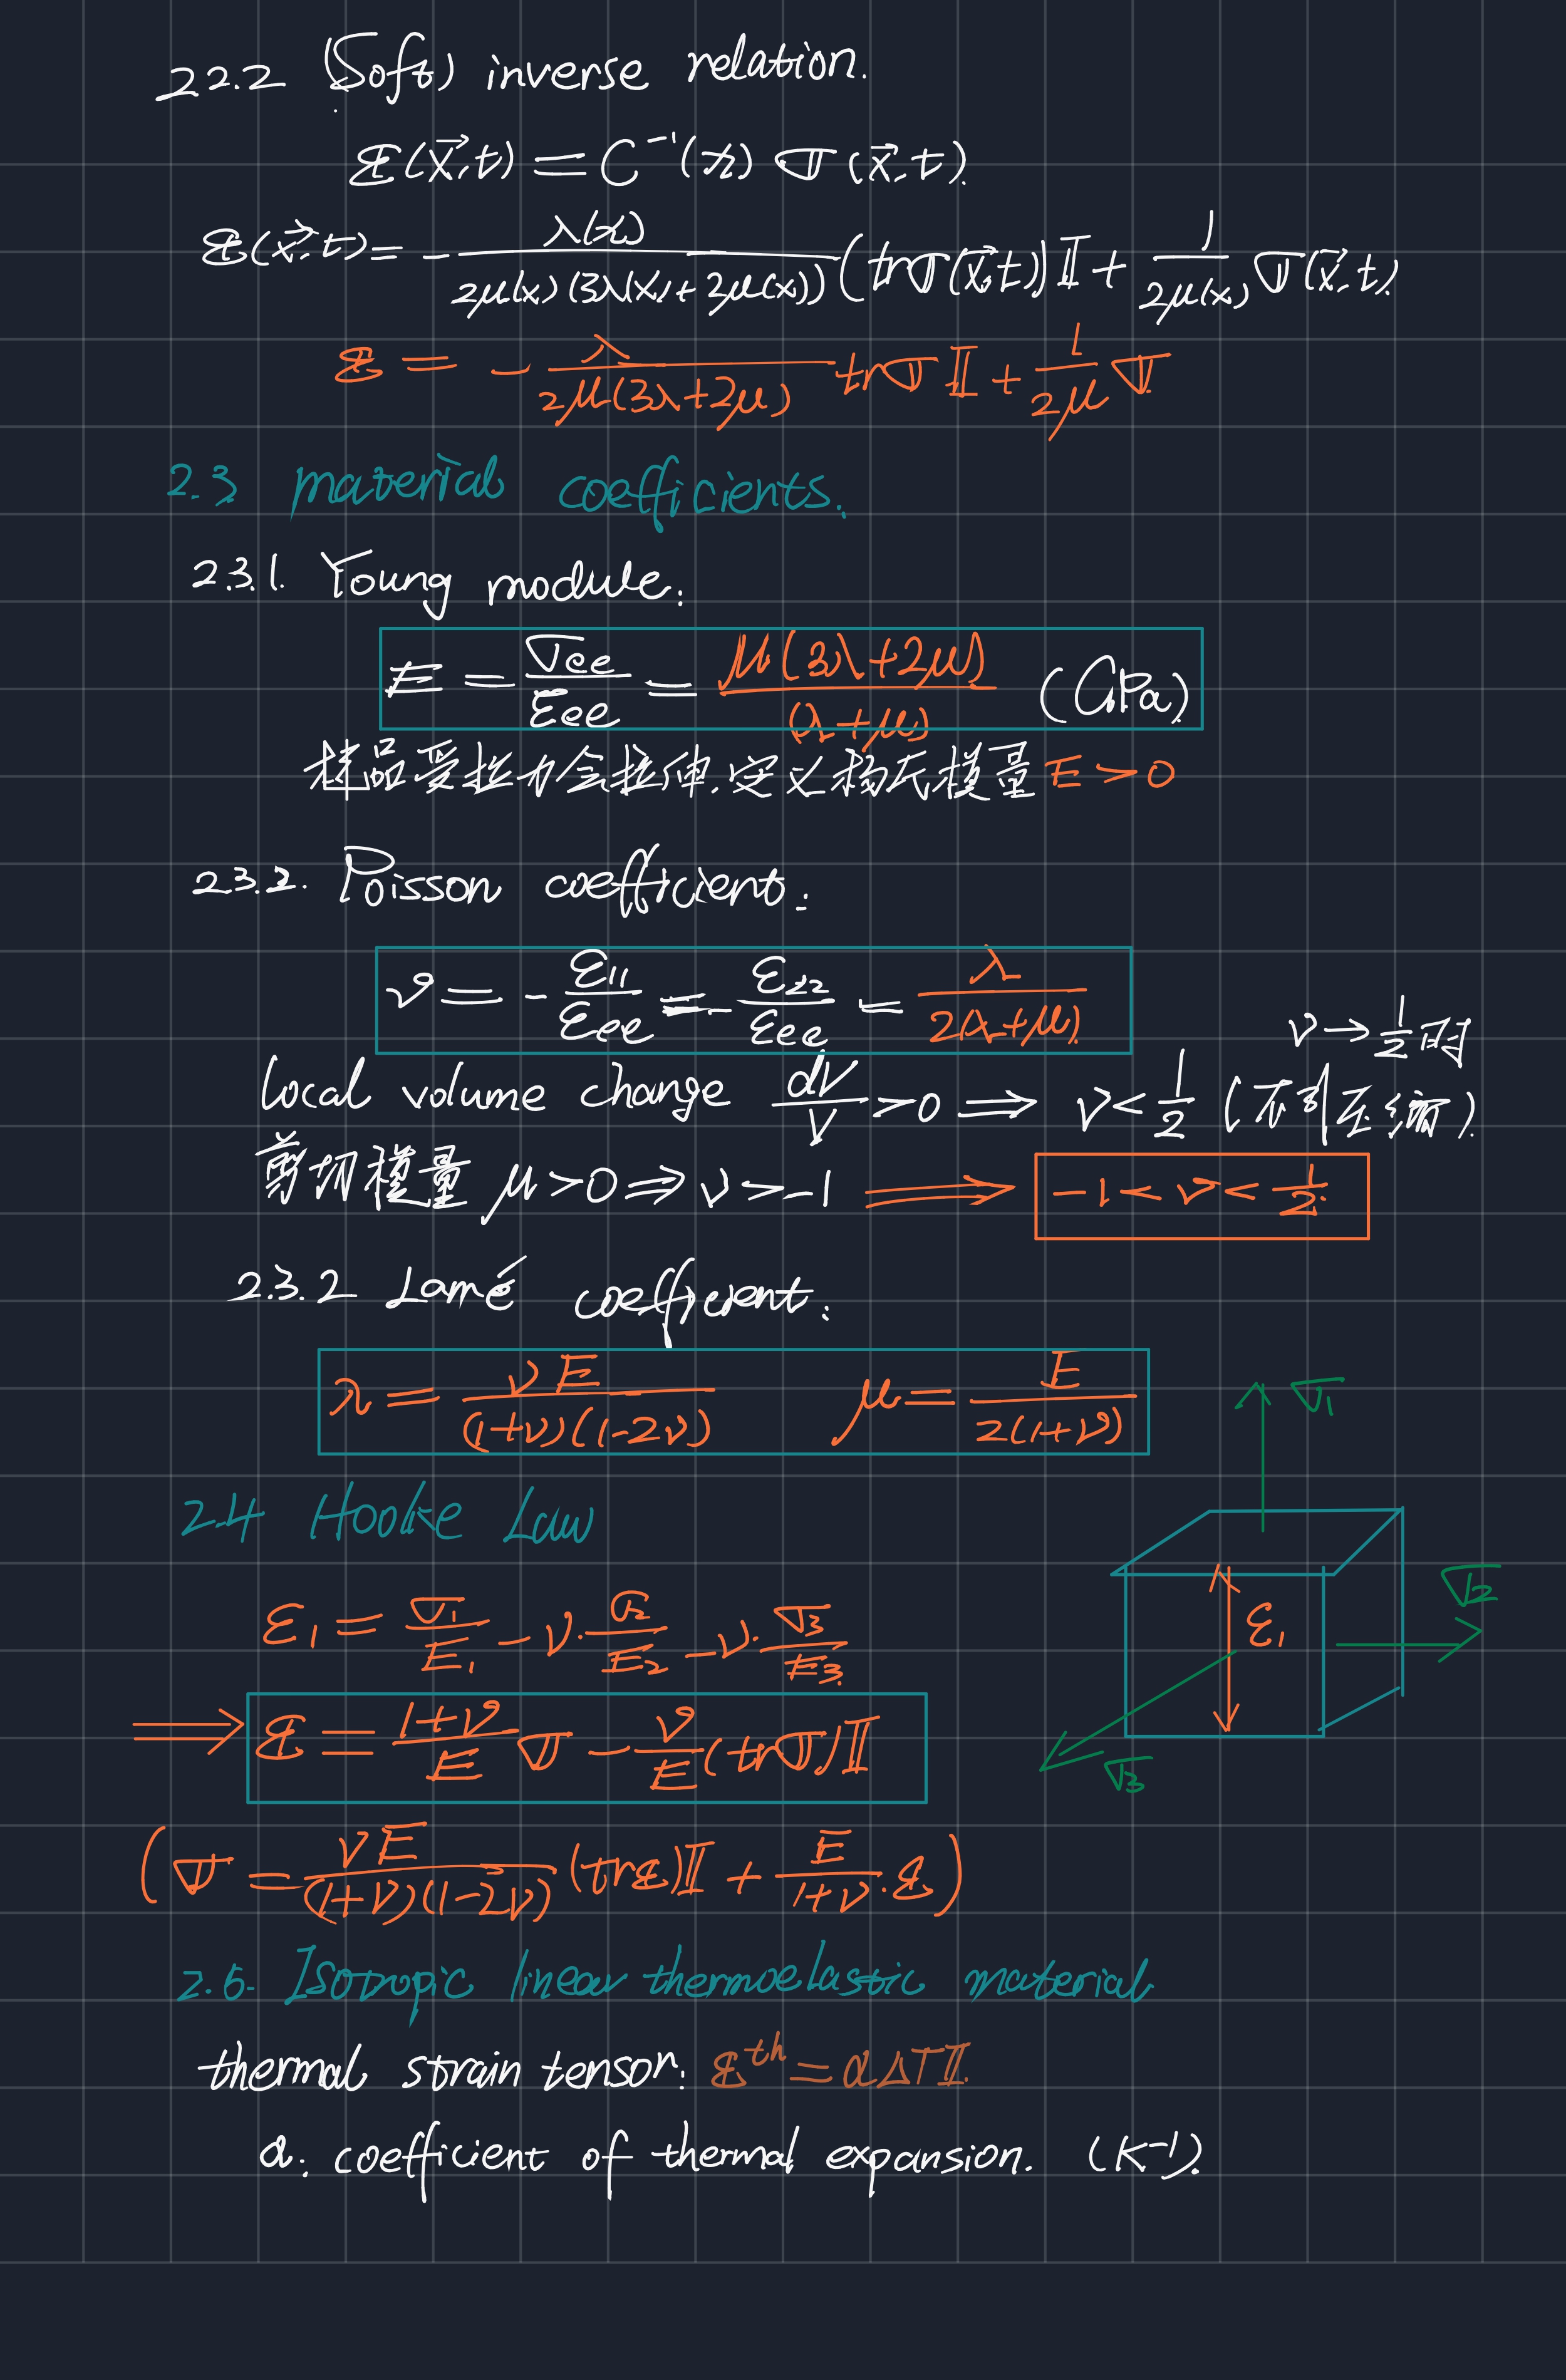 2.2.2 (Soft) inverse relation.
𝜺(x⃗,t) = C⁻¹(x) 𝝈(x⃗,t)
𝜺(x⃗,t) = - λ(x) / 2μ(x)(3λ(x)+2μ(x)) (tr𝝈(x⃗,t))𝕀 + 1/2μ(x) 𝝈(x⃗,t)
𝜺 = - λ / 2μ(3λ+2μ) tr𝝈 𝕀 + 1/2μ 𝝈
2.3 material coefficients.
2.3.1. Young module.
E = σee / εee = μ(3λ+2μ) / (λ+μ) (GPa)
样品受拉力会拉伸.定义杨氏模量 E > 0
2.3.2. Poisson coefficient:
ν = - ε11 / εee = - ε22 / εee = λ / 2(λ+μ)
ν → 1/2 时
local volume change dV/V > 0 ⟹ ν < 1/2 (不可压缩)
剪切模量 μ > 0 ⇒ ν > -1 ⟹ -1 < ν < 1/2
2.3.2 Lamé coefficient:
λ = νE / (1+ν)(1-2ν) μ = E / 2(1+ν)
σ1
2.4 Hooke Law
σ2
ε1 = σ1/E1 - ν·σ2/E2 - ν·σ3/E3
ε1
⟹ 𝜺 = 1+ν/E 𝝈 - ν/E (tr𝝈)𝕀
σ3
(𝝈 = νE / (1+ν)(1-2ν) (tr𝜺)𝕀 + E/1+ν · 𝜺)
2.6. Isotropic linear thermoelastic material
thermal strain tensor: 𝜺ᵗʰ = αΔT𝕀
α: coefficient of thermal expansion. (K⁻¹)